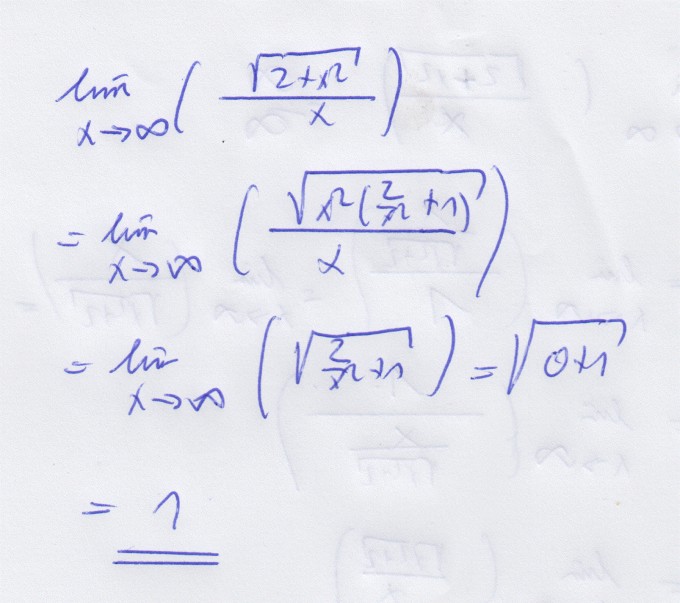 lim x→∞ ( √(2+x²) / x )
= lim x→∞ ( √(x²(2/x² + 1)) / x )
= lim x→∞ ( √(2/x² + 1) ) = √(0+1)
= 1